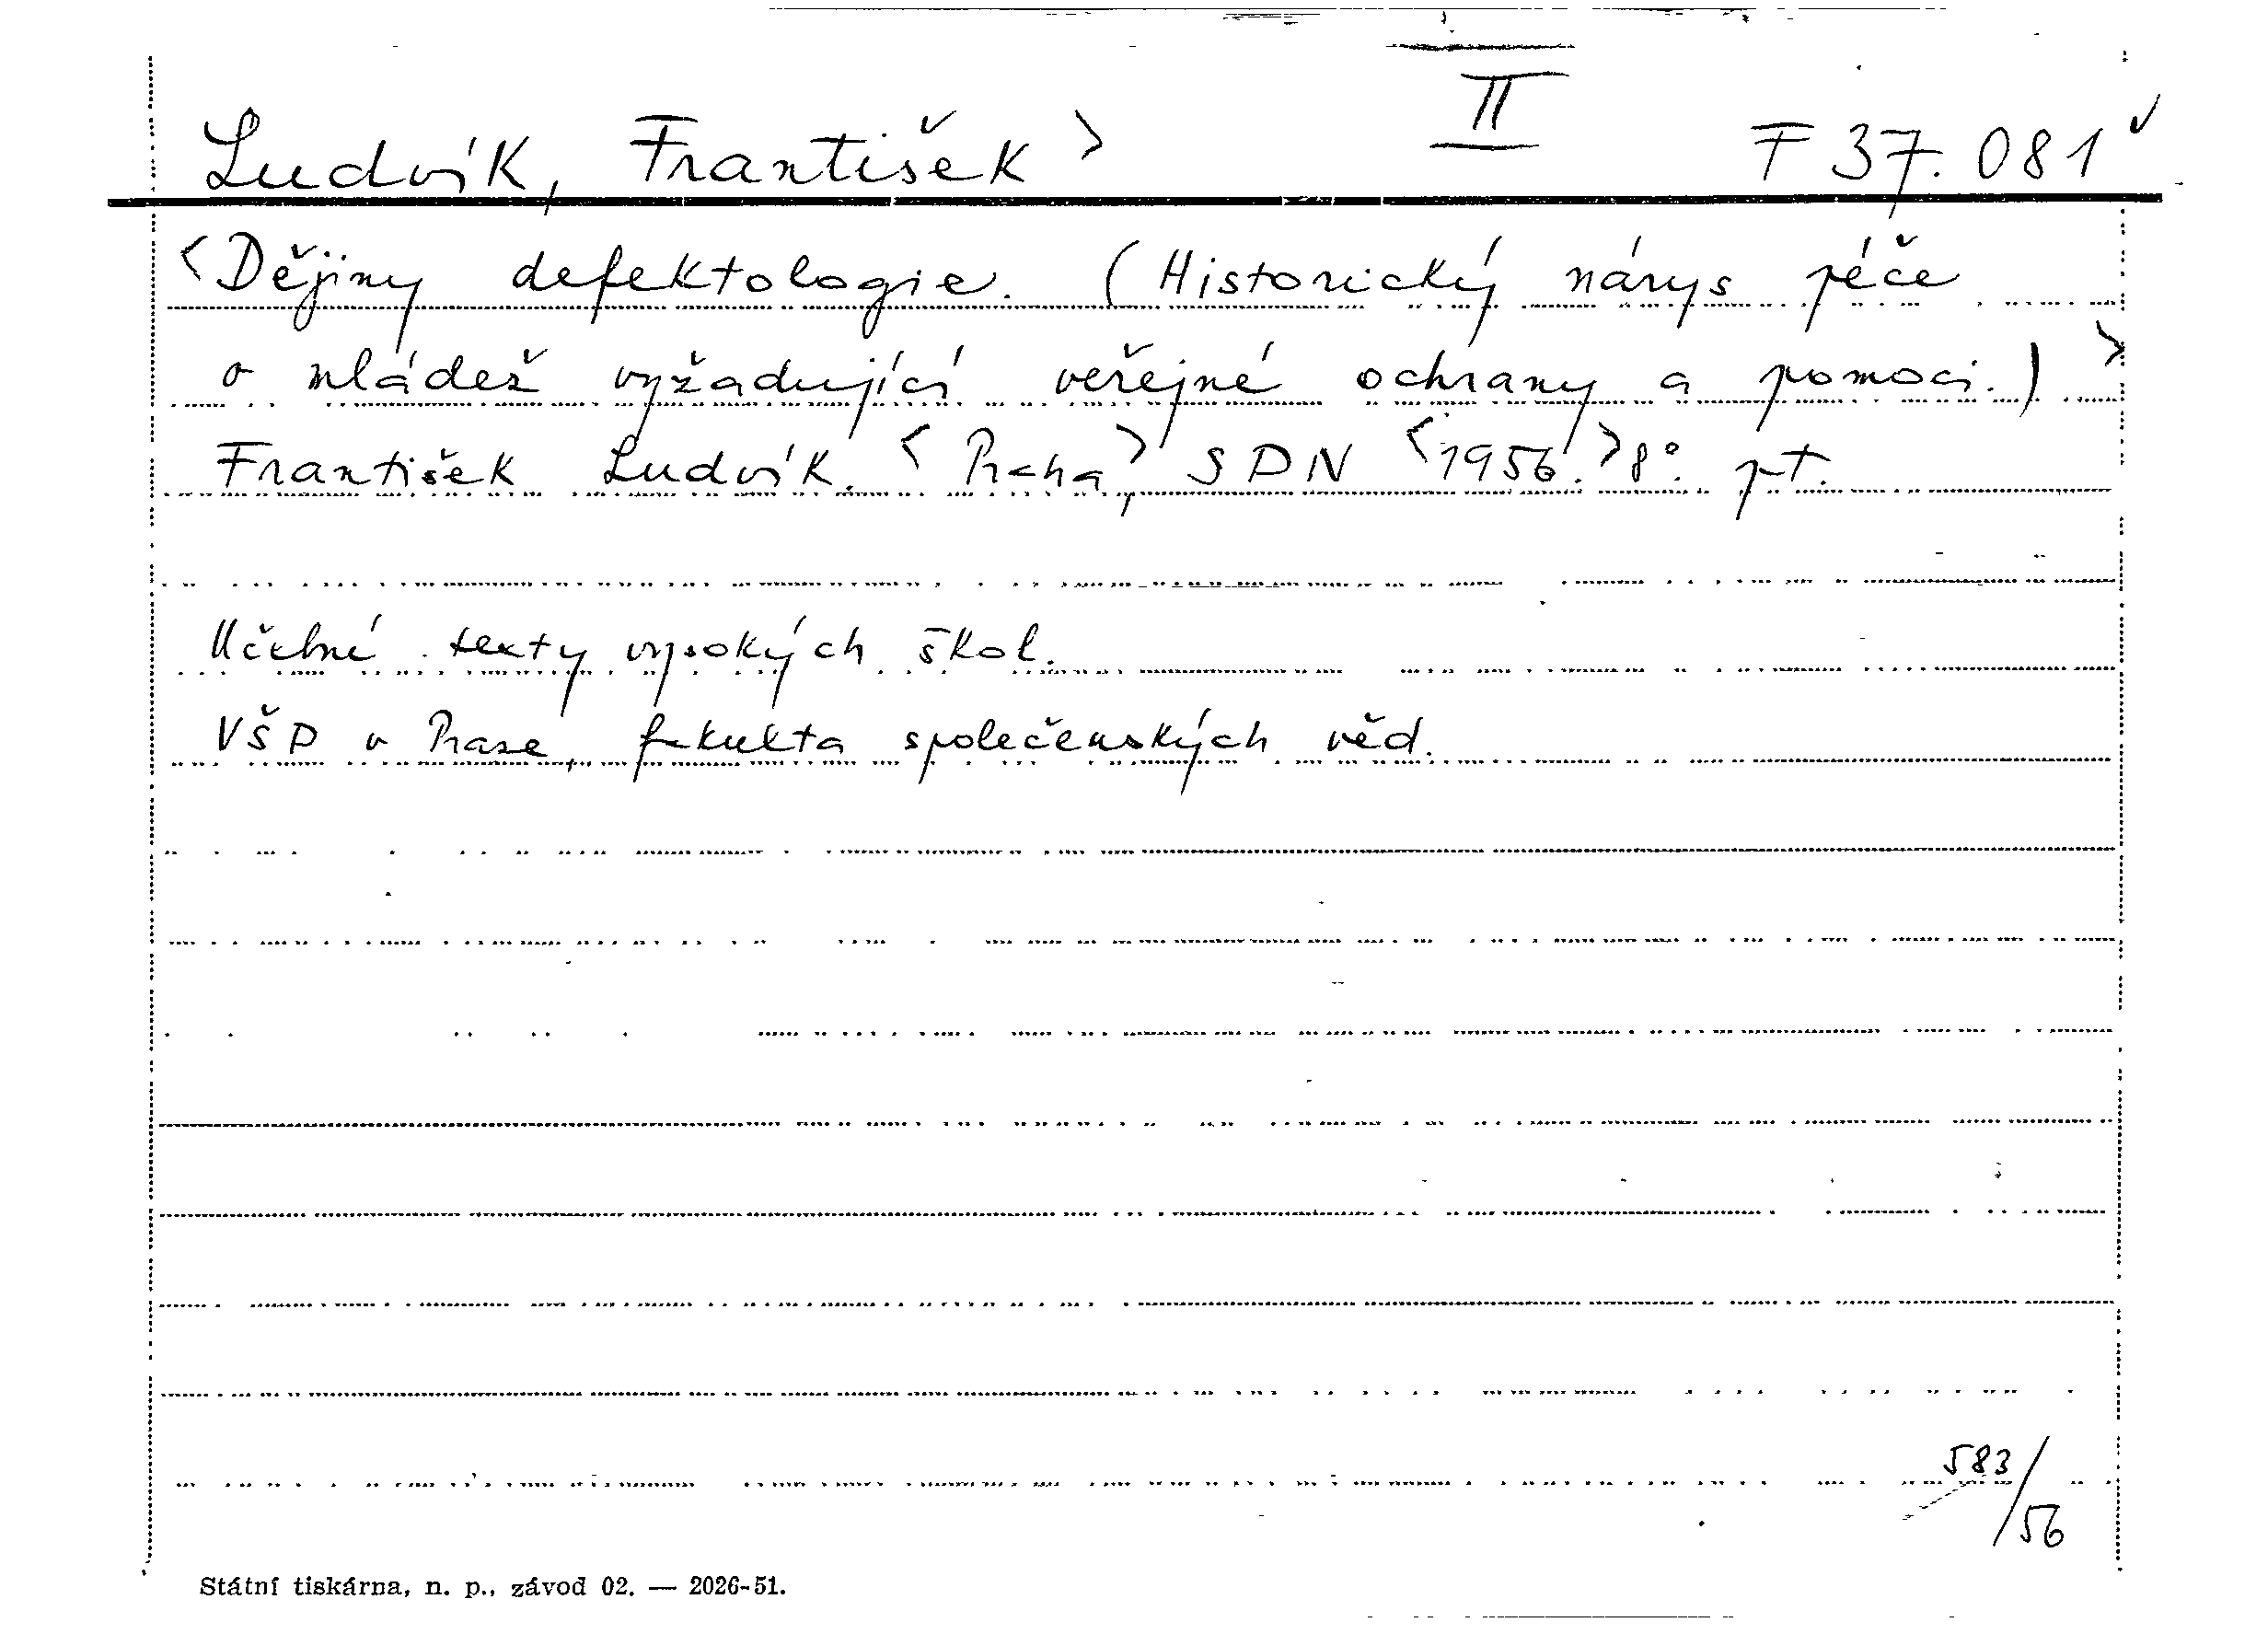 II
Ludvík, František > F 37.081 ✓
<Dějiny defektologie. (Historický nárys péče
o mládež vyžadující veřejné ochrany a pomoci.) >
František Ludvík. <Praha,> SPN <1956.> 8° pt.
Učebné texty vysokých škol.
VŠP v Praze, fakulta společenských věd.
583/56
Státní tiskárna, n. p., závod 02. — 2026-51.